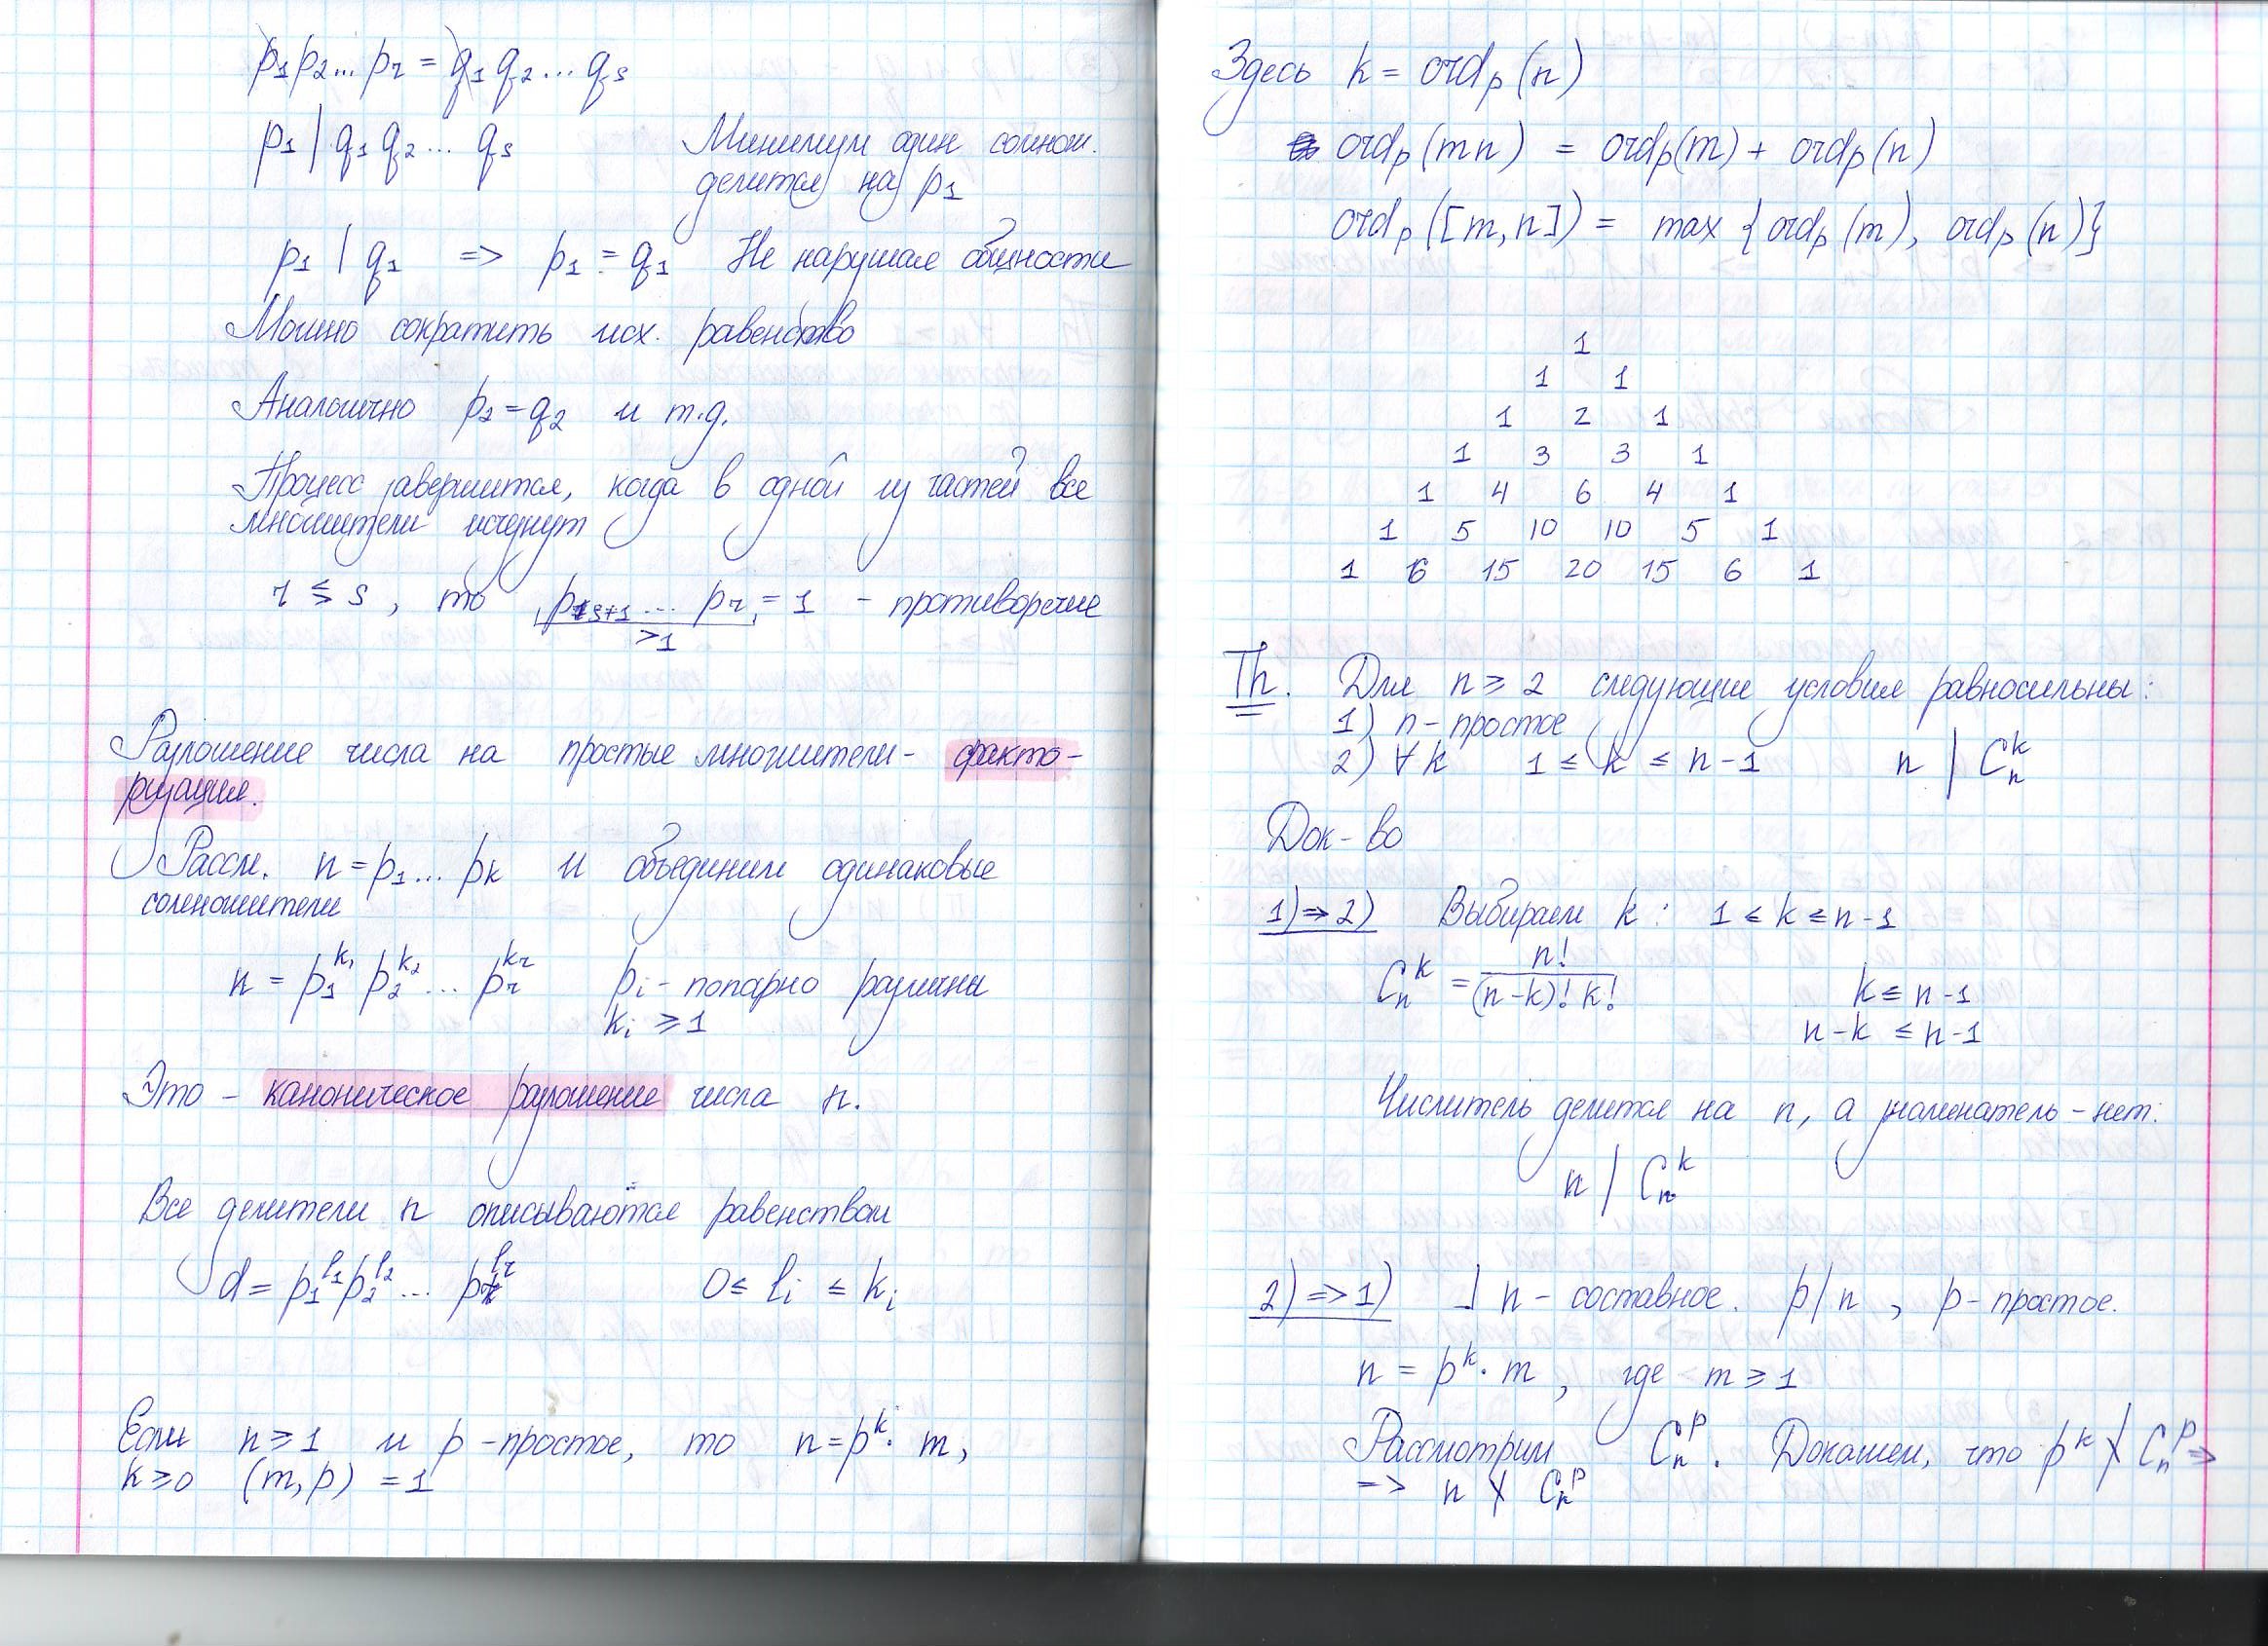 p₁p₂... p_r = q₁q₂...q_s
p₁ | q₁q₂... q_s Минимум один сомнож.
делится на p₁
p₁ | q₁ => p₁ = q₁ Не нарушая общности
Можно сократить исх. равенство
Аналогично p₂ = q₂ и т.д.
Процесс завершится, когда в одной из частей все
множители исчезнут
r ≶ s, то p_{s+1} ... p_r = 1 - противоречие
>1
Разложение числа на простые множители - факто-
ризация.
Рассм. n = p₁... p_k и объединим одинаковые
сомножители
n = p₁^{k₁} p₂^{k₂} ... p_r^{k_r} p_i - попарно различны
k_i ⩾ 1
Это - каноническое разложение числа n.
Все делители n описываются равенством
d = p₁^{l₁} p₂^{l₂} ... p_r^{l_r} 0 ⩽ l_i ⩽ k_i
Если n ⩾ 1 и p - простое, то n = p^k · m,
k ⩾ 0 (m, p) = 1
Здесь k = ord_p(n)
ord_p(mn) = ord_p(m) + ord_p(n)
ord_p([m, n]) = max {ord_p(m), ord_p(n)}
1
1 1
1 2 1
1 3 3 1
1 4 6 4 1
1 5 10 10 5 1
1 6 15 20 15 6 1
Th. Для n ⩾ 2 следующие условия равносильны:
1) n - простое
2) ∀k 1 ⩽ k ⩽ n-1 n | C_n^k
Док-во
1) => 2) Выбираем k: 1 ⩽ k ⩽ n-1
C_n^k = n! / (n-k)! k! k ⩽ n-1
n-k ⩽ n-1
Числитель делится на n, а знаменатель - нет:
n | C_n^k
2) => 1) ⌋ n - составное. p | n, p - простое.
n = p^k · m, где m ⩾ 1
Рассмотрим C_n^p. Докажем, что p^k ∤ C_n^p =>
=> n ∤ C_n^p